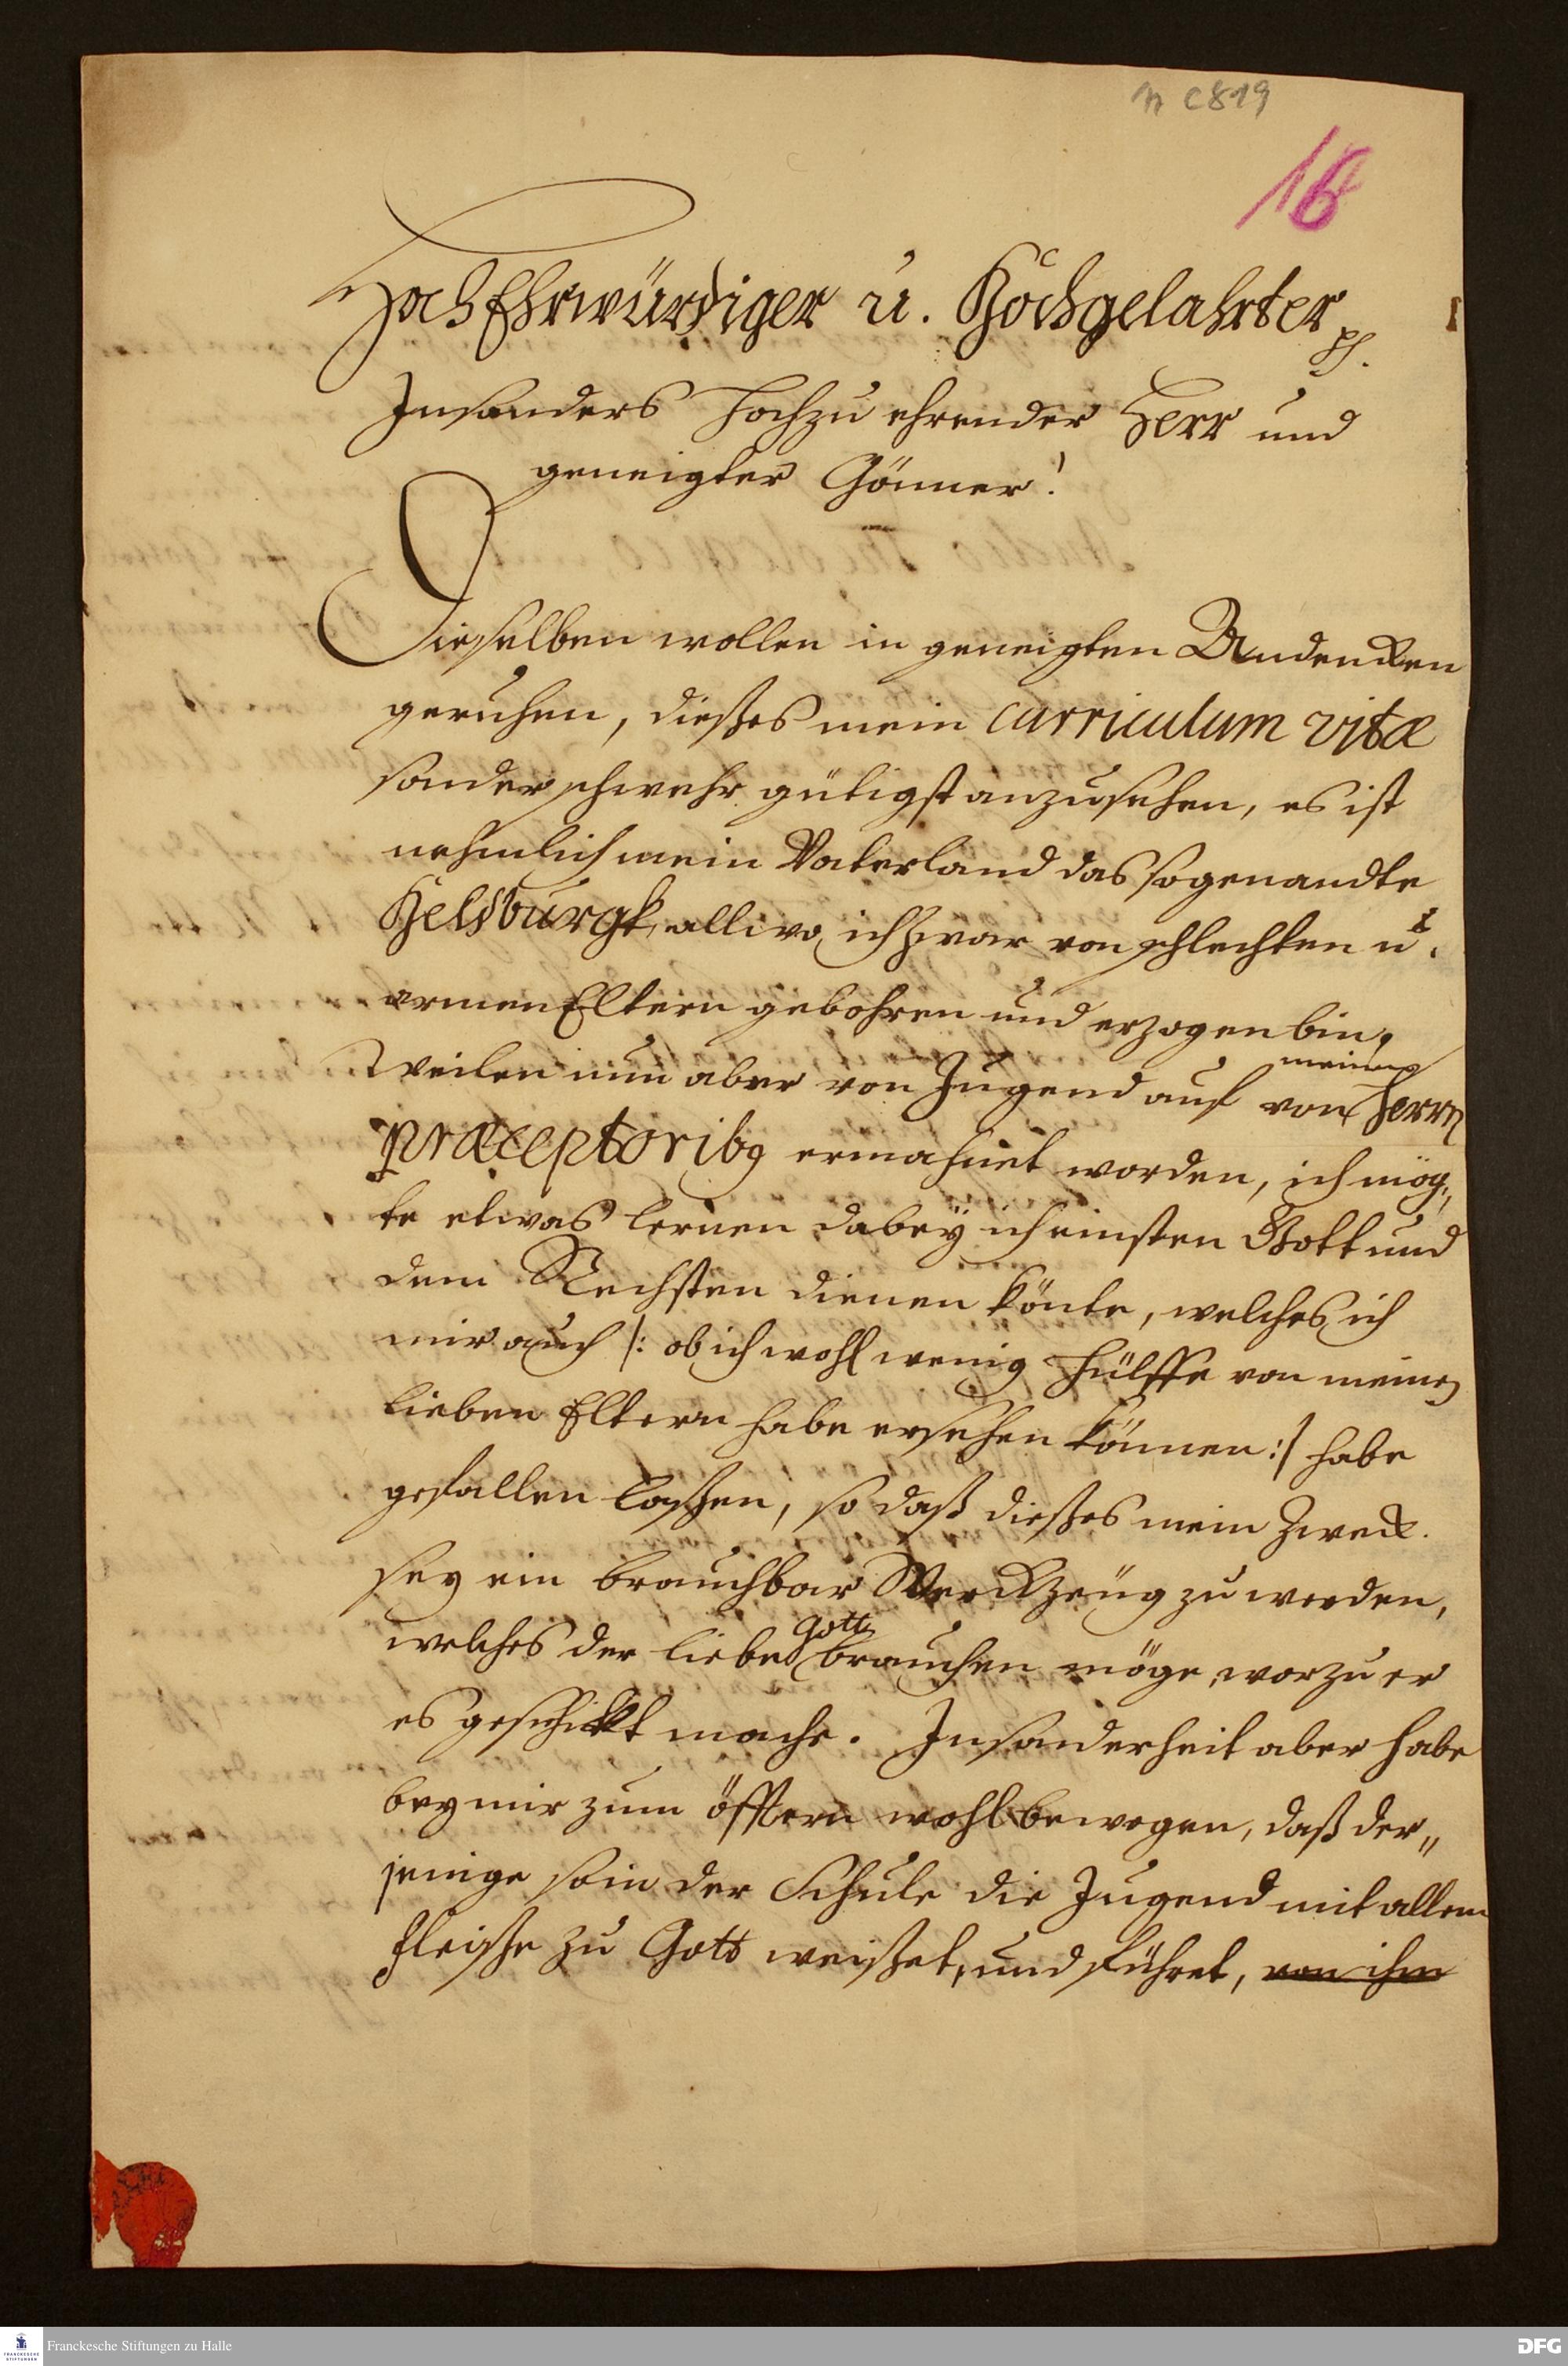 n C819
16
HochEhrwürdiger u. Hochgelahrter
pp.
Insonders Hochzu ehrender Herr und
geneigter Gönner!
Dieselben wollen in geneigten Andencken
geruhen, dießes mein curriculum vitæ
sonder schwehr gütigst anzusehen, es ist
nehmlich mein Vaterland das sogenandte
Heldburgk, allwo ich zwar von schlechten u.
armen Eltern gebohren und erzogen bin,
weilen nun aber von Jugend auf von meinen Herrn
præceptoribg ermahnet worden, ich mög„
te etwas lernen dabeÿ ich einsten Gott und
dem Nechsten dienen könte, welches ich
mir auch /: ob ich wohl wenig Hülffe von meinen
lieben Eltern habe ersehen können :/ habe
gefallen laßen, so daß dießes mein Zweck
sey ein brauchbar Werckzeüg zu werden,
welches der liebe Gott brauchen möge, worzu er
es geschickt mache. Insonderheit aber habe
bey mir zum öfftern wohl bewogen, daß der„
jenige so in der Schule die Jugend mit allem
fleiße zu Gott weißet, und führet, von ihm
Franckesche Stiftungen zu Halle
FRANCKESCHE STIFTUNGEN
DFG